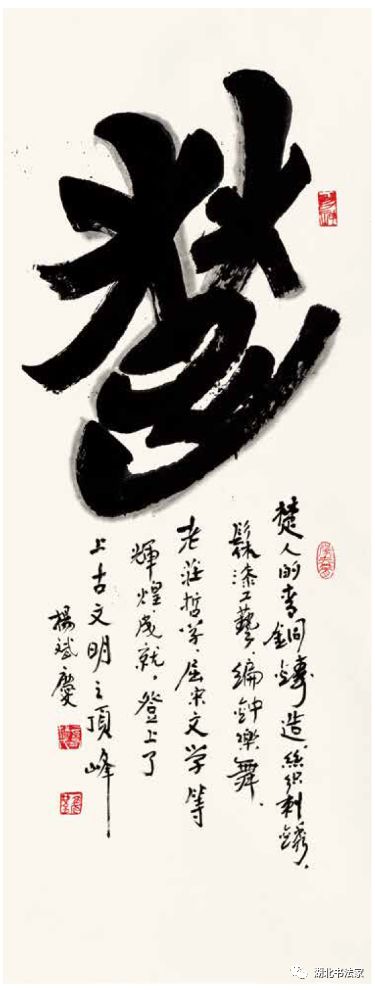 楚
楚人的青銅鑄造、絲织刺銹、
髹漆工藝、编鈡樂舞、
老莊哲学、屈宋文学等
輝煌成就，登上了
上古文明之頂峰
楊斌慶
湖北书法家